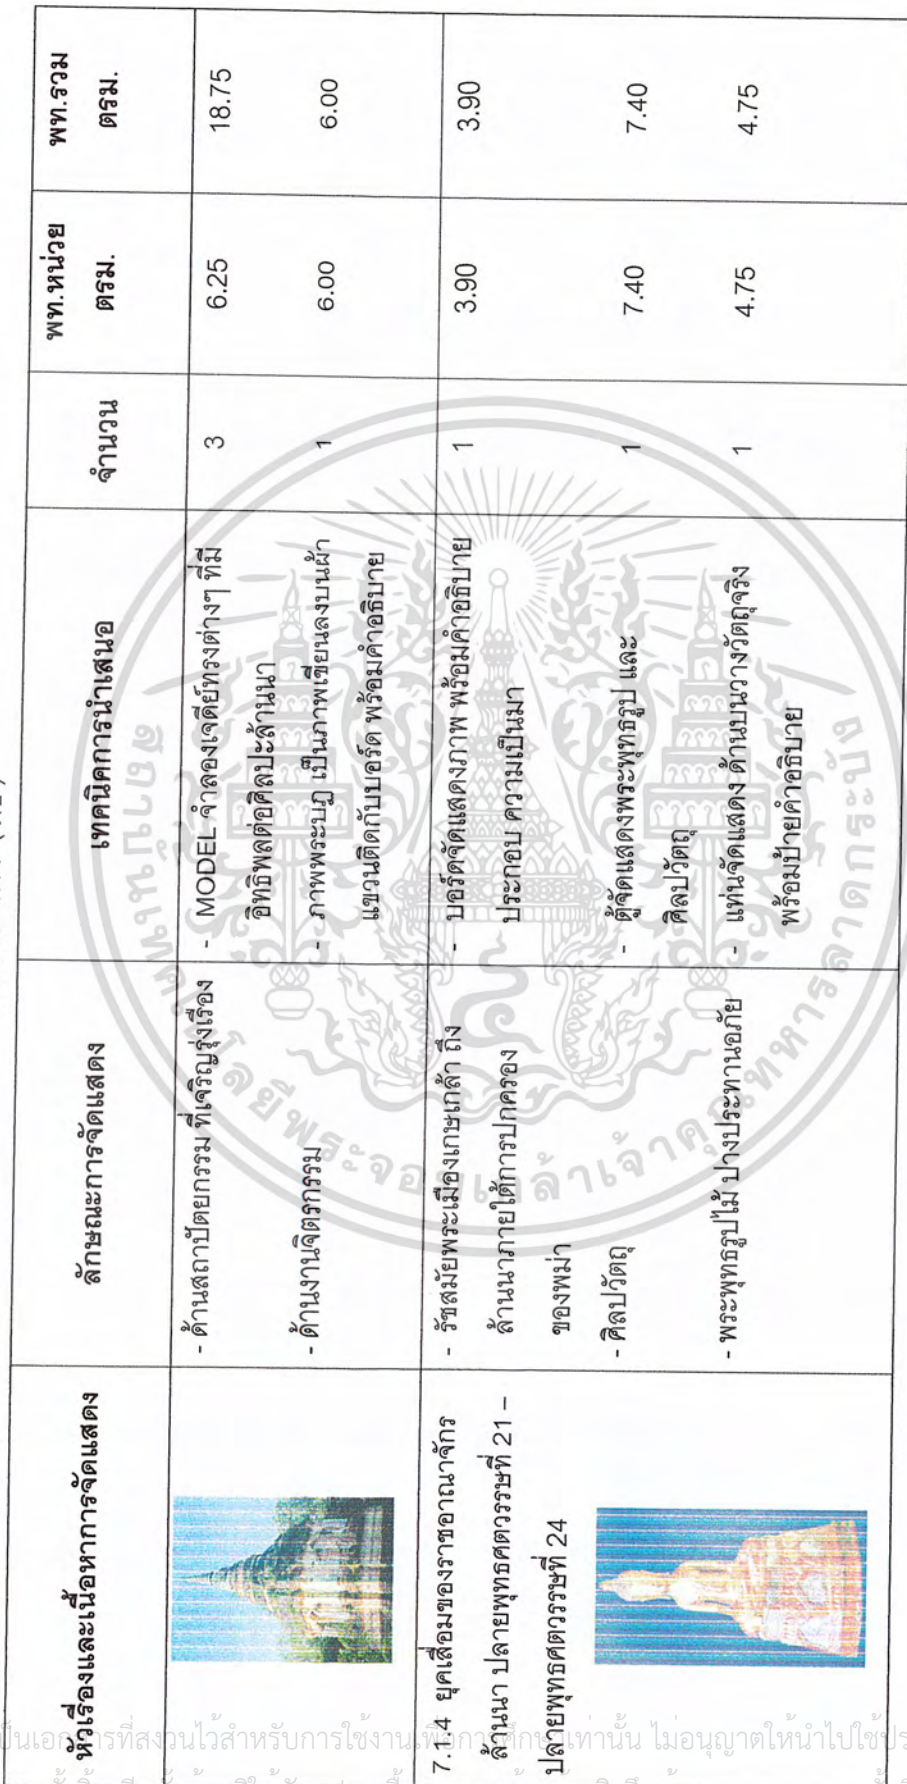 หัวเรื่องและเนื้อหาการจัดแสดง
ลักษณะการจัดแสดง
เทคนิคการนำเสนอ
จำนวน
พท.หน่วย
ตรม.
พท.รวม
ตรม.
- ด้านสถาปัตยกรรม ที่เจริญรุ่งเรือง
- MODEL จำลองเจดีย์ทรงต่างๆ ที่มี
อิทธิพลต่อศิลปะล้านนา
3
6.25
18.75
- ด้านงานจิตรกรรม
- ภาพพระบฏ เป็นภาพเขียนลงบนผ้า
แขวนติดกับบอร์ด พร้อมคำอธิบาย
1
6.00
6.00
7.1.4 ยุคเสื่อมของราชอาณาจักร
ล้านนา ปลายพุทธศตวรรษที่ 21 –
ปลายพุทธศตวรรษที่ 24
- รัชสมัยพระเมืองเกษเกล้า ถึง
ล้านนาภายใต้การปกครอง
ของพม่า
- บอร์ดจัดแสดงภาพ พร้อมคำอธิบาย
ประกอบ ความเป็นมา
1
3.90
3.90
- ศิลปวัตถุ
- ตู้จัดแสดงพระพุทธรูป และ
ศิลปวัตถุ
1
7.40
7.40
- พระพุทธรูปไม้ ปางประทานอภัย
- แท่นจัดแสดง ด้านบนวางวัตถุจริง
พร้อมป้ายคำอธิบาย
1
4.75
4.75
สถาบันเทคโนโลยีพระจอมเกล้าเจ้าคุณทหารลาดกระบัง
เป็นเอกสารที่สงวนไว้สำหรับการใช้งานเพื่อการศึกษาเท่านั้น ไม่อนุญาตให้นำไปใช้ประ